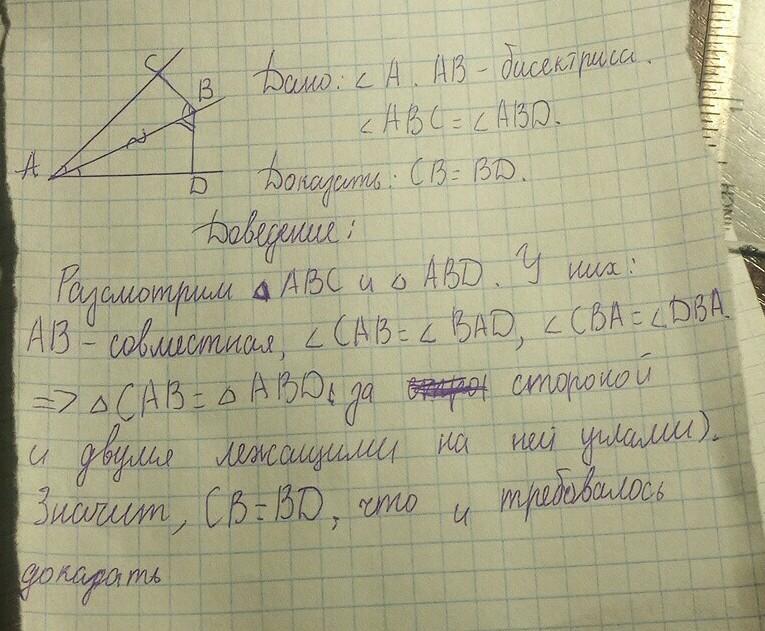 C
B
A
D
Дано: ∠A. AB - бисектриса.
∠ABC = ∠ABD.
Доказать: CB = BD.
Доведение:
Разсмотрим ▵ ABC и ▵ ABD. У них:
AB - совместная, ∠CAB = ∠BAD, ∠CBA = ∠DBA.
=> ▵ CAB = ▵ ABD (за стороной
и двумя лежащими на ней углами).
Значит, CB = BD, что и требовалось
доказать
INCH